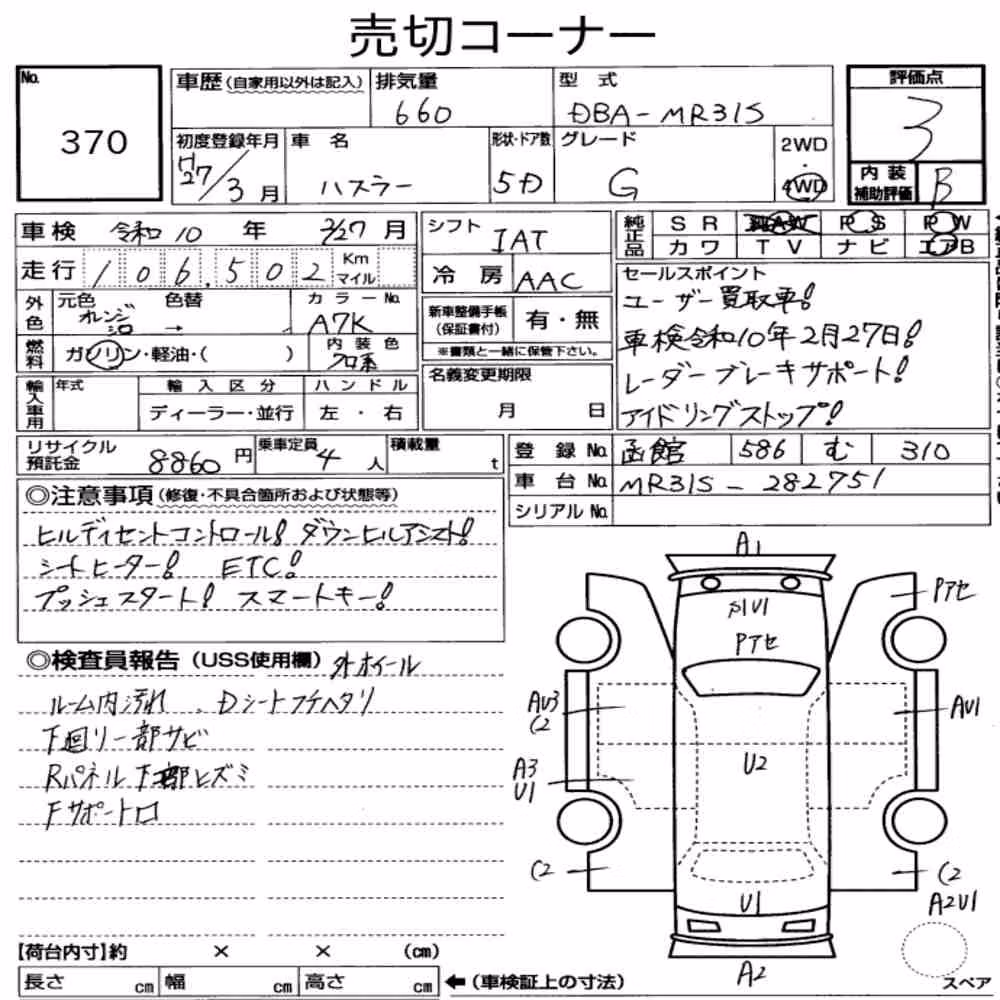 売切コーナー
No. 370
車歴(自家用以外は記入)
排気量 660
型式 DBA-MR31S
評価点 3
初度登録年月 H27/3月
車名 ハスラー
形状・ドア数 5D
グレード G
2WD・4WD
内装補助評価 B
車検 令和10年 2/27月
走行 106,502 Km マイル
シフト IAT
冷房 AAC
純正品 SR AW PS PW
カワ TV ナビ エアB
外色 元色 オレンジ 色替 → カラーNo. A7K
燃料 ガソリン・軽油・( ) 内装色 クロ系
新車整備手帳(保証書付) 有・無
※書類と一緒に保管下さい。
セールスポイント
ユーザー買取車!
車検令和10年2月27日!
レーダーブレーキサポート!
アイドリングストップ!
輸入車用 年式 輸入区分 ハンドル
ディーラー・並行 左・右
名義変更期限 月 日
リサイクル預託金 8860円
乗車定員 4人
積載量 t
登録No. 函館 586 む 310
車台No. MR31S-282751
シリアルNo.
◎注意事項(修復・不具合箇所および状態等)
ヒルディセントコントロール! ダウンヒルアシスト!
シートヒーター! ETC!
プッシュスタート! スマートキー!
◎検査員報告(USS使用欄) 外ホイール
ルーム内汚れ、Dシートフチヘタリ
下回り一部サビ
Rパネル下部ヒズミ
Fサポート口
A1
U1
Pアセ
Pアセ
AU3
C2
AU1
A3
U1
U2
C2
C2
A2U1
U1
A2
スペア
【荷台内寸】約 × × (cm)
長さ cm 幅 cm 高さ cm ←(車検証上の寸法)